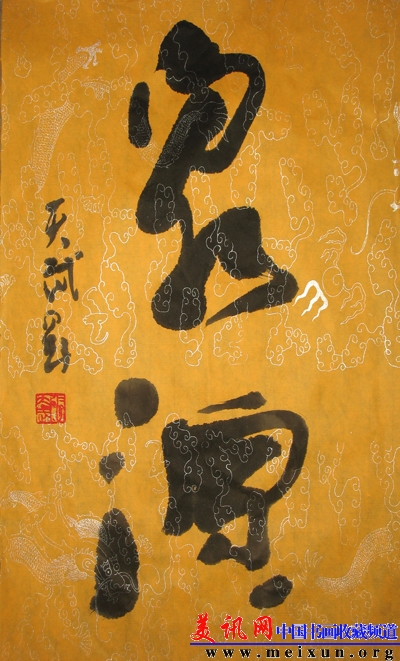 泉源
美讯网 中国书画收藏频道
www.meixun.org